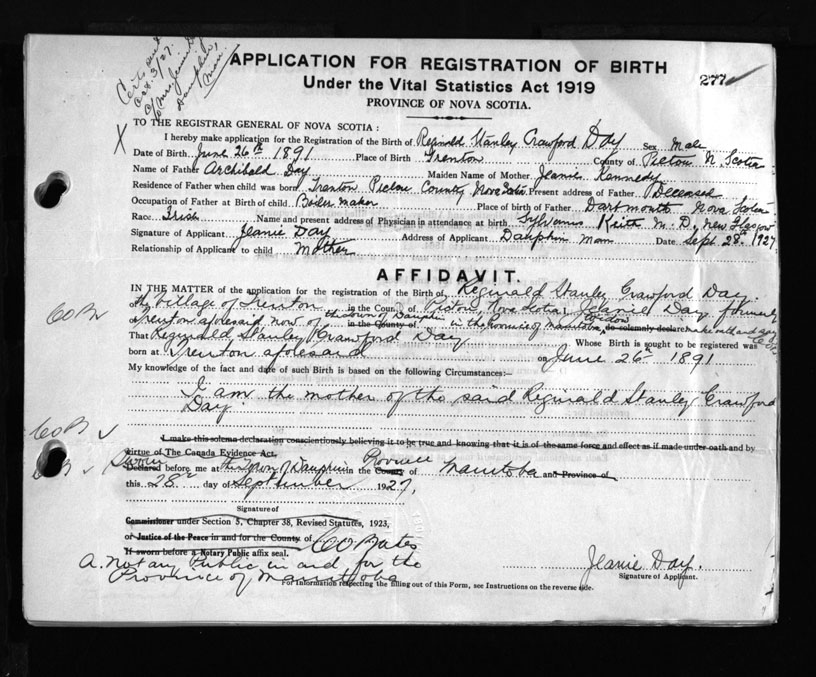 Certs and
Oct. 3/27.
c/o Mrs Jeanie Day
Dauphin,
Man.
APPLICATION FOR REGISTRATION OF BIRTH
277
Under the Vital Statistics Act 1919
PROVINCE OF NOVA SCOTIA.
TO THE REGISTRAR GENERAL OF NOVA SCOTIA :
X
I hereby make application for the Registration of the Birth of Reginald Stanley Crawford Day Sex Male
Date of Birth June 26th 1891 Place of Birth Trenton County of Pictou N. Scotia
Name of Father Archibald Day Maiden Name of Mother Jeanie Kennedy
Residence of Father when child was born Trenton Pictou County Nova Scotia Present address of Father Deceased
Occupation of Father at Birth of child Boiler maker Place of birth of Father Dartmouth Nova Scotia
Race Irish Name and present address of Physician in attendance at birth Sylvanus Keith M. D. New Glasgow
Signature of Applicant Jeanie Day Address of Applicant Dauphin Man Date Sept. 28th 1927
Relationship of Applicant to child Mother
AFFIDAVIT.
IN THE MATTER of the application for the registration of the Birth of Reginald Stanley Crawford Day.
of the Village of Trenton in the County of Pictou, Nova Scotia, Day formerly
of Trenton aforesaid now of the town of Dauphin in the County of in the Province of Manitoba, Widow do solemnly declare make oath and say
COB
That Reginald Stanley Crawford Day Whose Birth is sought to be registered was
born at Trenton aforesaid on June 26th 1891
My knowledge of the fact and date of such Birth is based on the following Circumstances:—
I am the mother of the said Reginald Stanley Crawford
Day.
COB
I make this solemn declaration conscientiously believing it to be true and knowing that it is of the same force and effect as if made under oath and by
virtue of The Canada Evidence Act.
Sworn Province
Declared before me at the town of Dauphin in the County of Manitoba and Province of
this 28th day of September 1927,
Signature of
Commissioner under Section 5, Chapter 38, Revised Statutes, 1923,
or Justice of the Peace in and for the County of CO Bates
If sworn before a Notary Public affix seal.
A. Notary Public in and for the
Province of Manitoba
Jeanie Day.
Signature of Applicant.
For Information respecting the filling out of this Form, see Instructions on the reverse side.